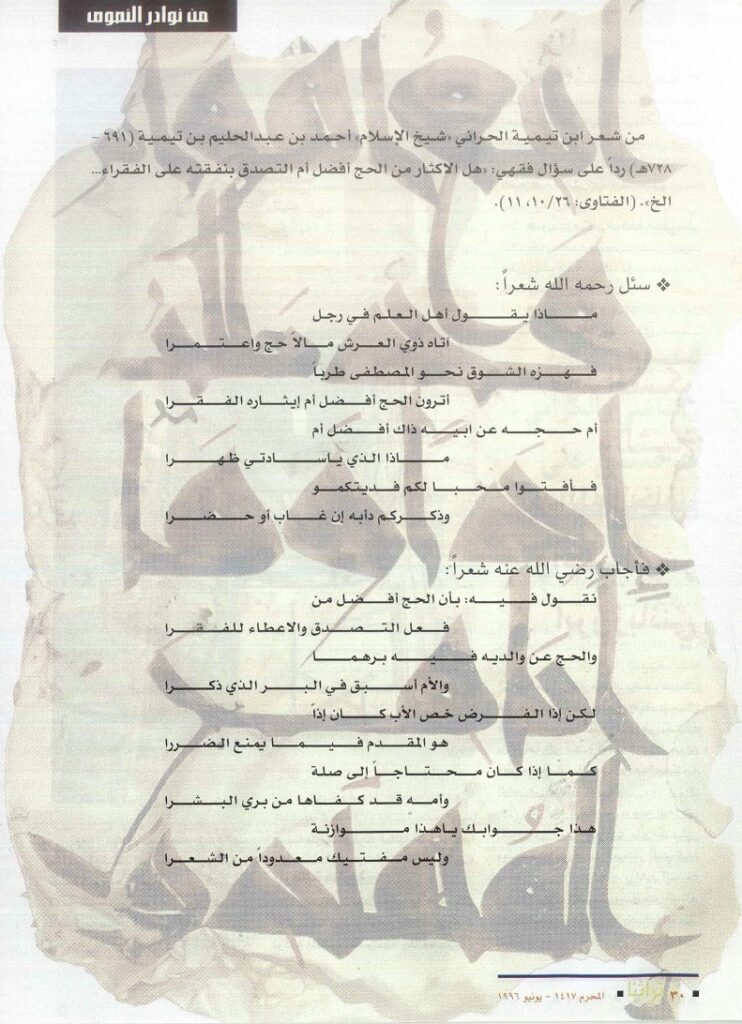 من نوادر النصوص
من شعر ابن تيمية الحراني «شيخ الإسلام» أحمد بن عبدالحليم بن تيمية (٦٩١ -
٧٢٨هـ) رداً على سؤال فقهي: «هل الاكثار من الحج أفضل أم التصدق بنفقته على الفقراء...
الخ». (الفتاوى: ١٠/٢٦، ١١).
❖ سئل رحمه الله شعراً:
ماذا يقول أهل العلم في رجل
آتاه ذوي العرش مالا حج واعتمرا
فهزه الشوق نحو المصطفى طرباً
أترون الحج أفضل أم إيثاره الفقرا
أم حجه عن ابيه ذاك أفضل أم
ماذا الذي ياسادتي ظهرا
فأفتوا محبا لكم فديتكمو
وذكركم دأبه إن غاب أو حضرا
❖ فأجاب رضي الله عنه شعراً:
نقول فيه: بأن الحج أفضل من
فعل التصدق والاعطاء للفقرا
والحج عن والديه فيه برهما
والأم أسبق في البر الذي ذكرا
لكن إذا الفرض خص الأب كان إذاً
هو المقدم فيما يمنع الضررا
كما إذا كان محتاجاً إلى صلة
وأمه قد كفاها من بري البشرا
هذا جوابك ياهذا موازنة
وليس مفتيك معدوداً من الشعرا
٣٠ تراثنا المحرم ١٤١٧ - يونيو ١٩٩٦